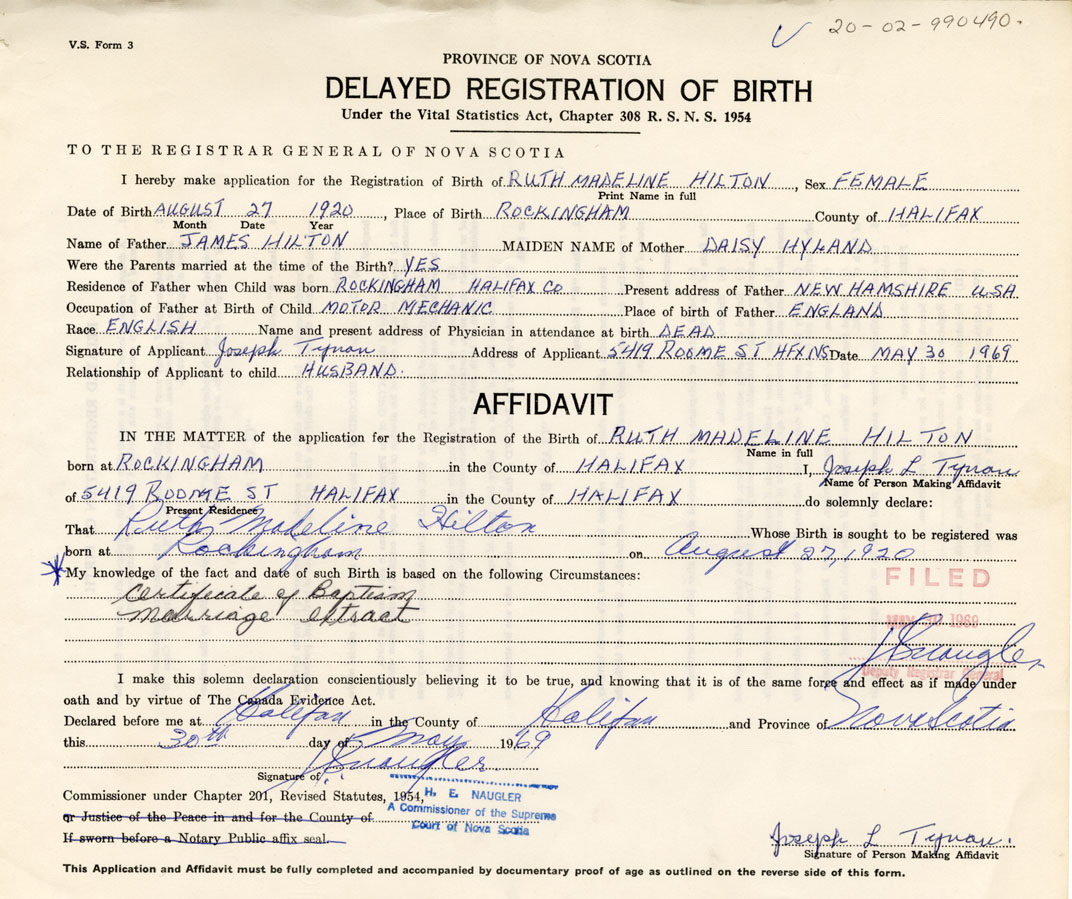 20-02-990490.
V.S. Form 3
PROVINCE OF NOVA SCOTIA
DELAYED REGISTRATION OF BIRTH
Under the Vital Statistics Act, Chapter 308 R. S. N. S. 1954
TO THE REGISTRAR GENERAL OF NOVA SCOTIA
I hereby make application for the Registration of Birth of RUTH MADELINE HILTON, Sex FEMALE
Print Name in full
Date of Birth AUGUST 27 1920, Place of Birth ROCKINGHAM County of HALIFAX
Month Date Year
Name of Father JAMES HILTON MAIDEN NAME of Mother DAISY HYLAND
Were the Parents married at the time of the Birth? YES
Residence of Father when Child was born ROCKINGHAM HALIFAX CO Present address of Father NEW HAMSHIRE USA
Occupation of Father at Birth of Child MOTOR MECHANIC Place of birth of Father ENGLAND
Race ENGLISH Name and present address of Physician in attendance at birth DEAD
Signature of Applicant Joseph Tynan Address of Applicant 5419 ROOME ST HFX NS Date MAY 30 1969
Relationship of Applicant to child HUSBAND.
AFFIDAVIT
IN THE MATTER of the application for the Registration of the Birth of RUTH MADELINE HILTON
Name in full
born at ROCKINGHAM in the County of HALIFAX I, Joseph L Tynan
Name of Person Making Affidavit
of 5419 ROOME ST HALIFAX in the County of HALIFAX do solemnly declare:
Present Residence
That Ruth Madeline Hilton Whose Birth is sought to be registered was
born at Rockingham on August 27, 1920
*My knowledge of the fact and date of such Birth is based on the following Circumstances:
FILED
Certificate of Baptism
Marriage extract
MAY 30 1969
HENaugler
Deputy Registrar General
I make this solemn declaration conscientiously believing it to be true, and knowing that it is of the same force and effect as if made under
oath and by virtue of The Canada Evidence Act.
Declared before me at Halifax in the County of Halifax and Province of Nova Scotia
this 30th day of May 1969
HENaugler.
Signature of
Commissioner under Chapter 201, Revised Statutes, 1954,
H. E. NAUGLER
A Commissioner of the Supreme
Court of Nova Scotia
or Justice of the Peace in and for the County of
If sworn before a Notary Public affix seal.
Joseph L Tynan.
Signature of Person Making Affidavit
This Application and Affidavit must be fully completed and accompanied by documentary proof of age as outlined on the reverse side of this form.